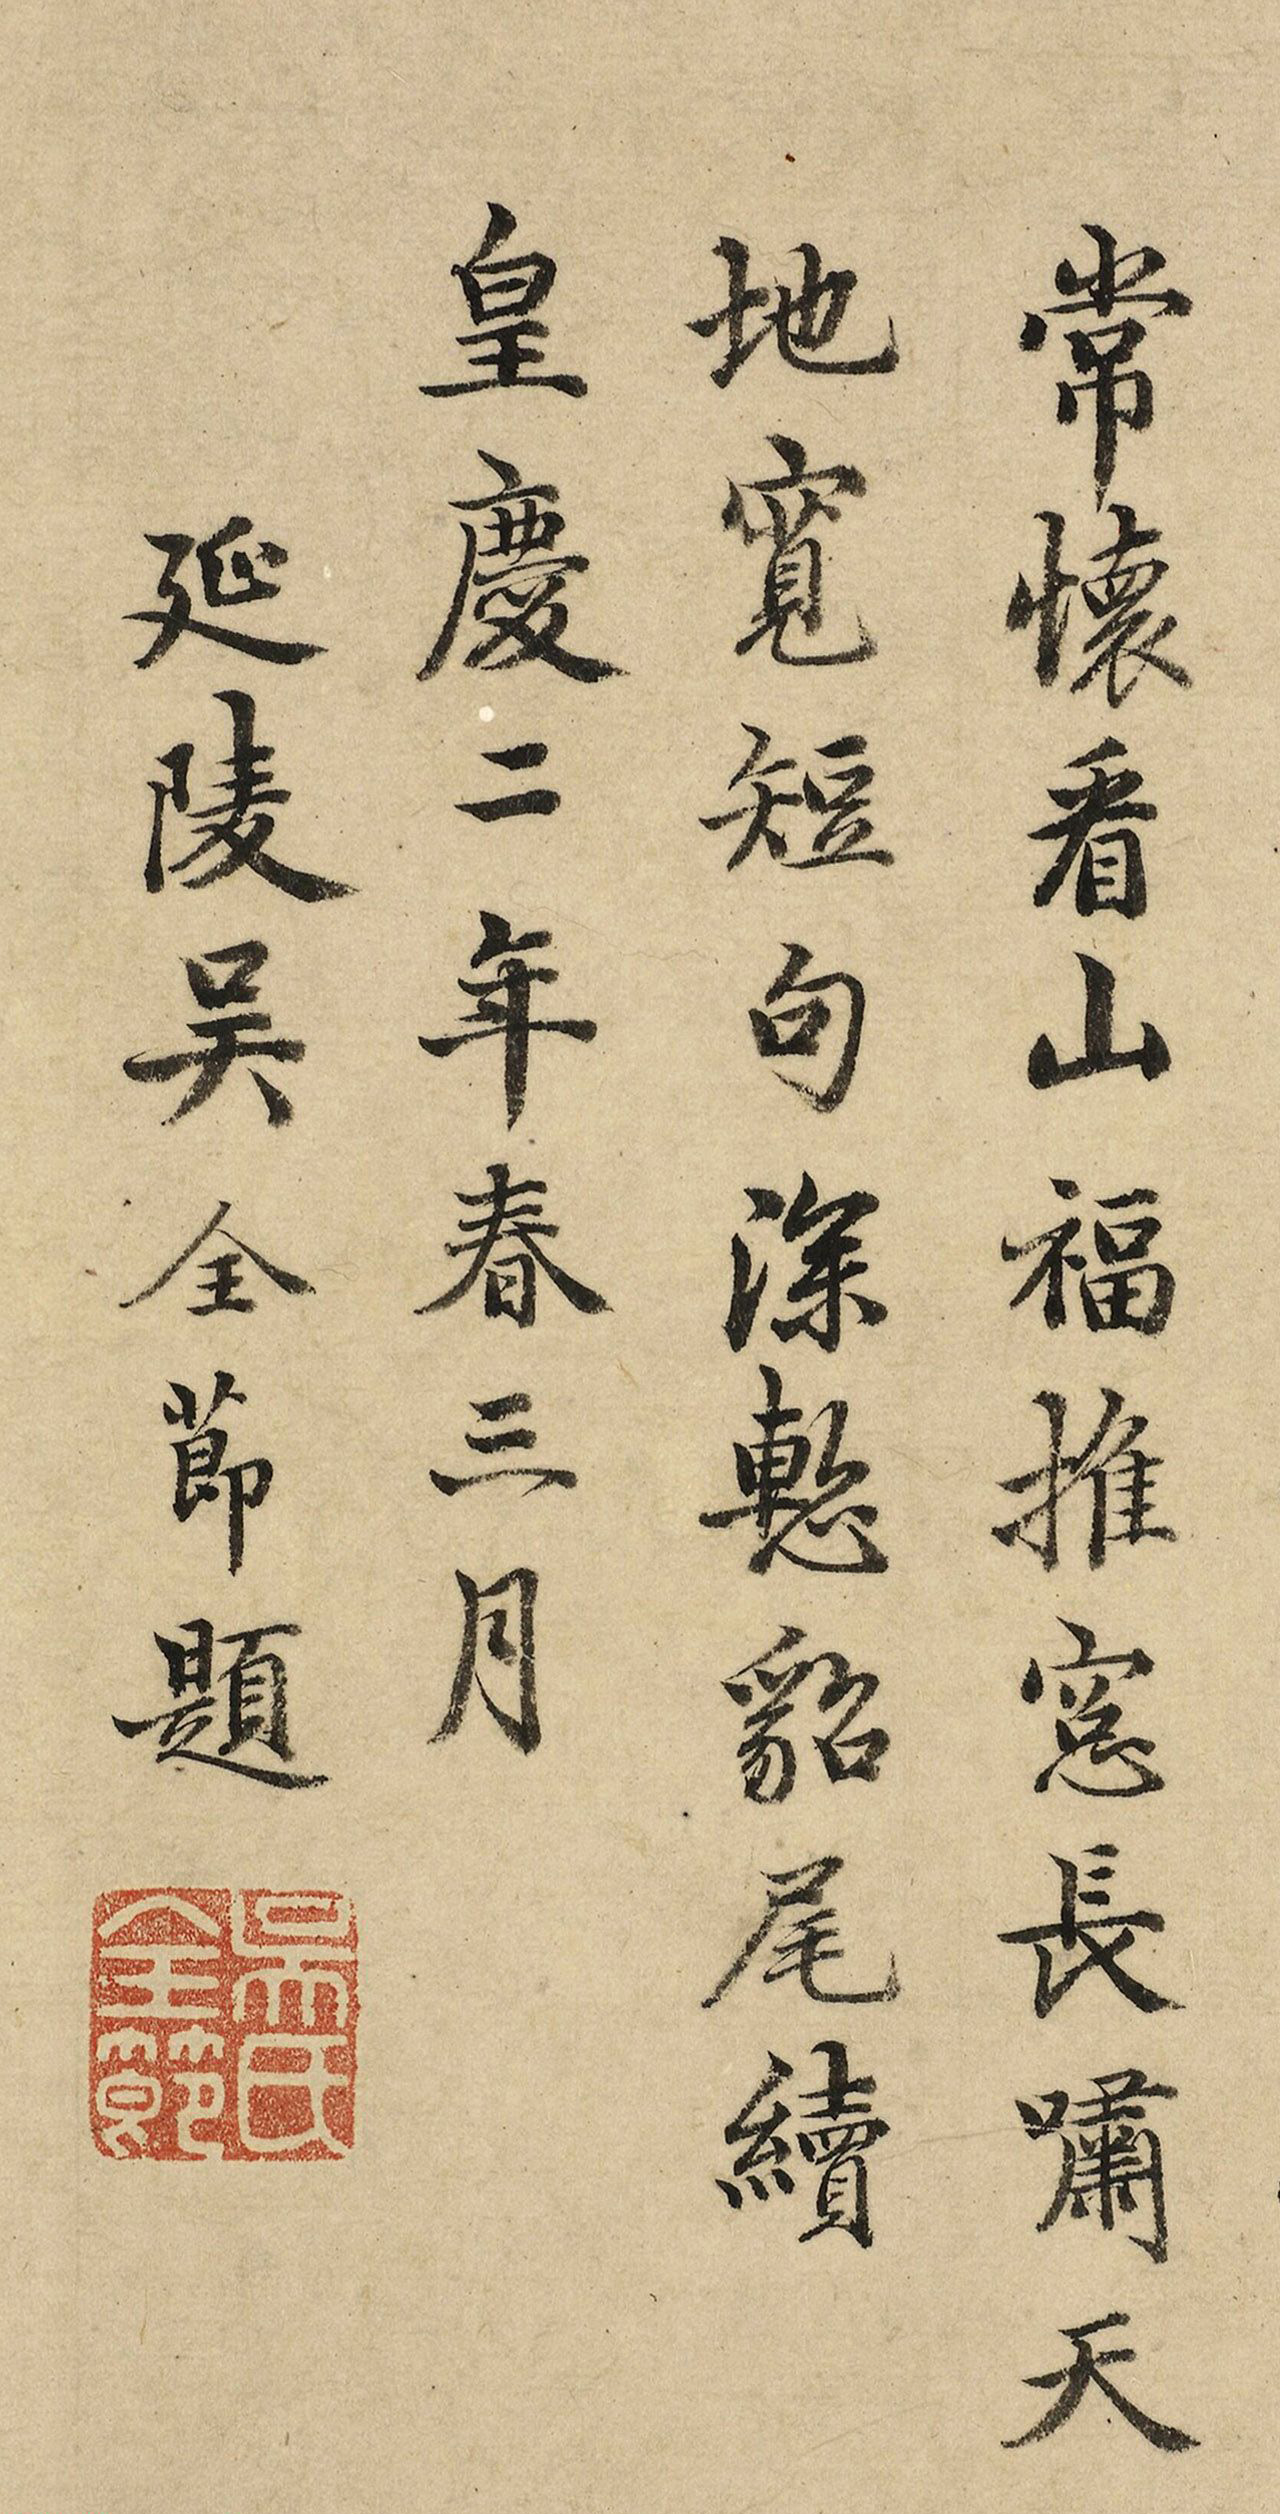 常懷看山福推窓長嘯天
地寛短句深慙貂尾續
皇慶二年春三月
延陵吳全節題
吳氏全節